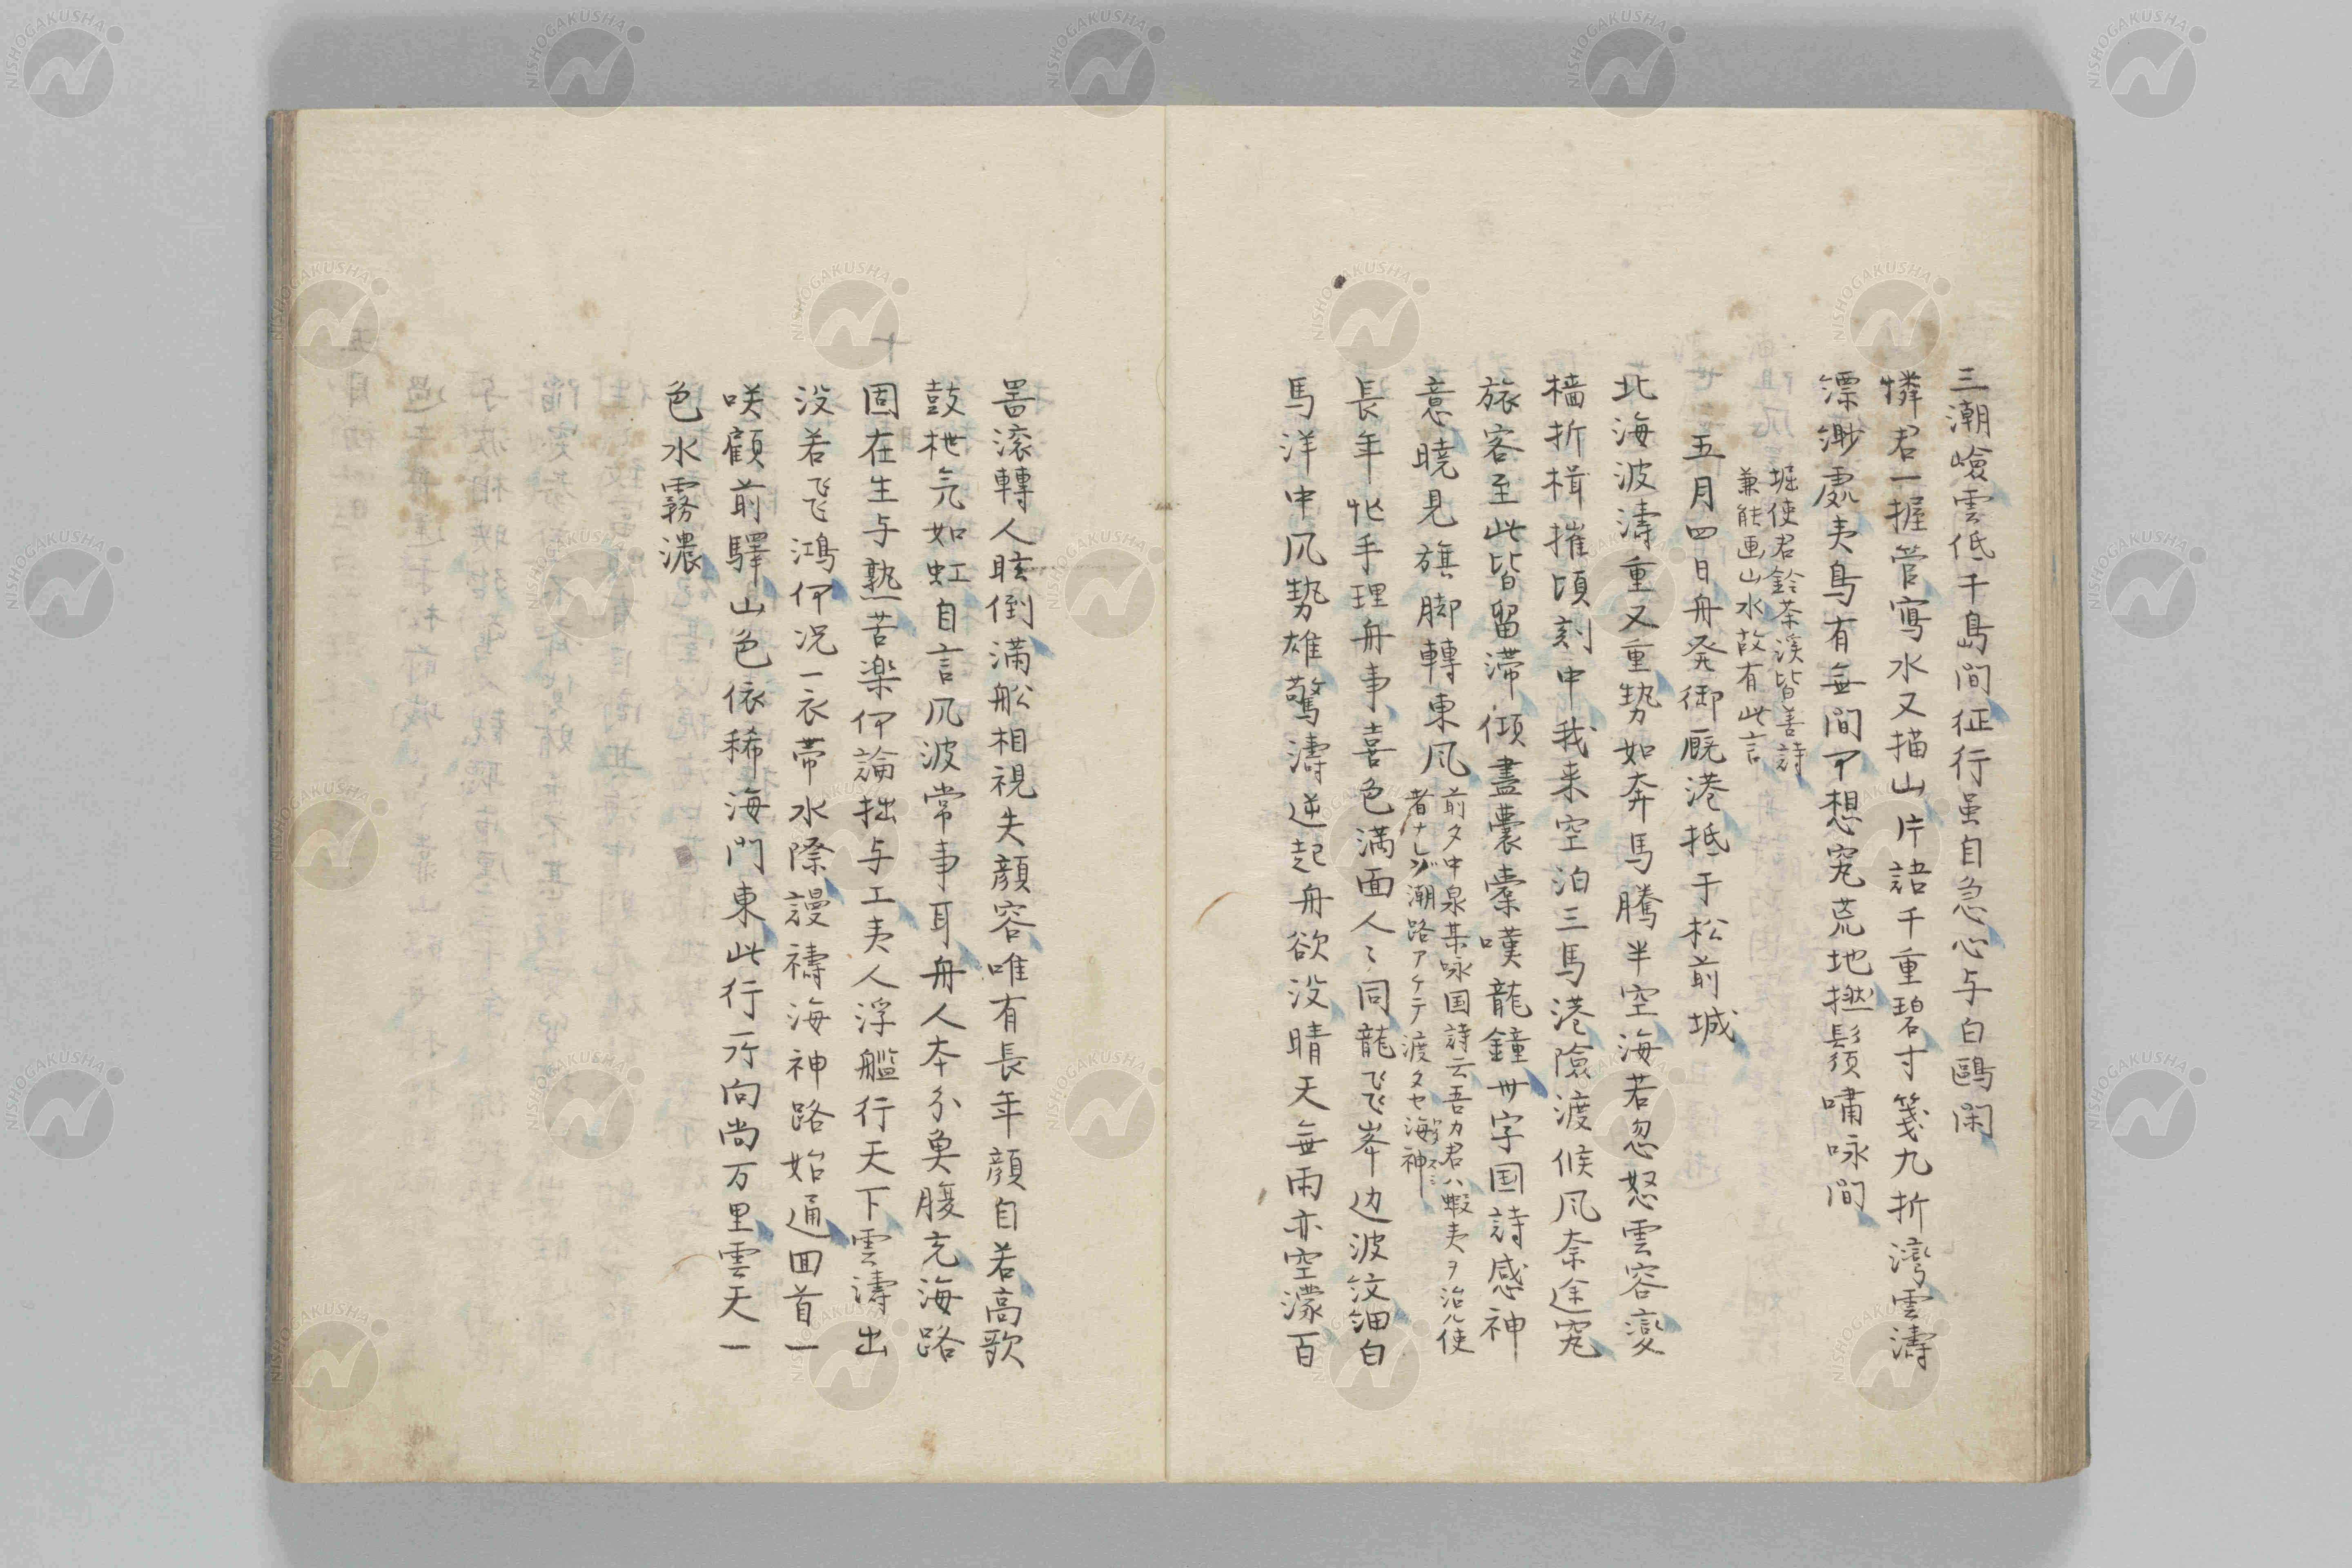 三潮嶮雲低千島間征行虽自急心与白鷗闲
憐君一握管寫水又描山片語千重碧寸箋九折湾雲濤
漂渺處夷鳥有無間可想窮荒地撚鬚嘯咏間
堀使君鈴茶溪皆善詩
兼能画山水故有此言
五月四日舟発御厩港抵于松前城
北海波濤重又重勢如奔馬騰半空海若忽怒雲容変
檣折楫摧頃刻中我来空泊三馬港險渡候风奈途窮
旅客至此皆留滞傾盡囊橐嘆龍鐘卅字国詩感神
意曉見旗脚轉東风
前夕中泉某咏国詩云吾カ君ハ蝦夷ヲ治ル使
者ナレバ潮路アケテ渡タセ海神
長年化手理舟事喜色満面人〻同龍飞峯边波紋細白
馬洋中风勢雄驚濤逆起舟欲没晴天無雨亦空濛百
噐滚轉人眩倒満舩相視失顔容唯有長年顔自若高歌
鼓枻气如虹自言风波常事耳舟人本分魚腹充海路
固在生与熟苦楽何論拙与工夷人浮艦行天下雲濤出
没若飞鴻何况一衣帯水際謾禱海神路始通回首一
咲顧前驛山色依稀海門東此行所向尚万里雲天一
色水霧濃